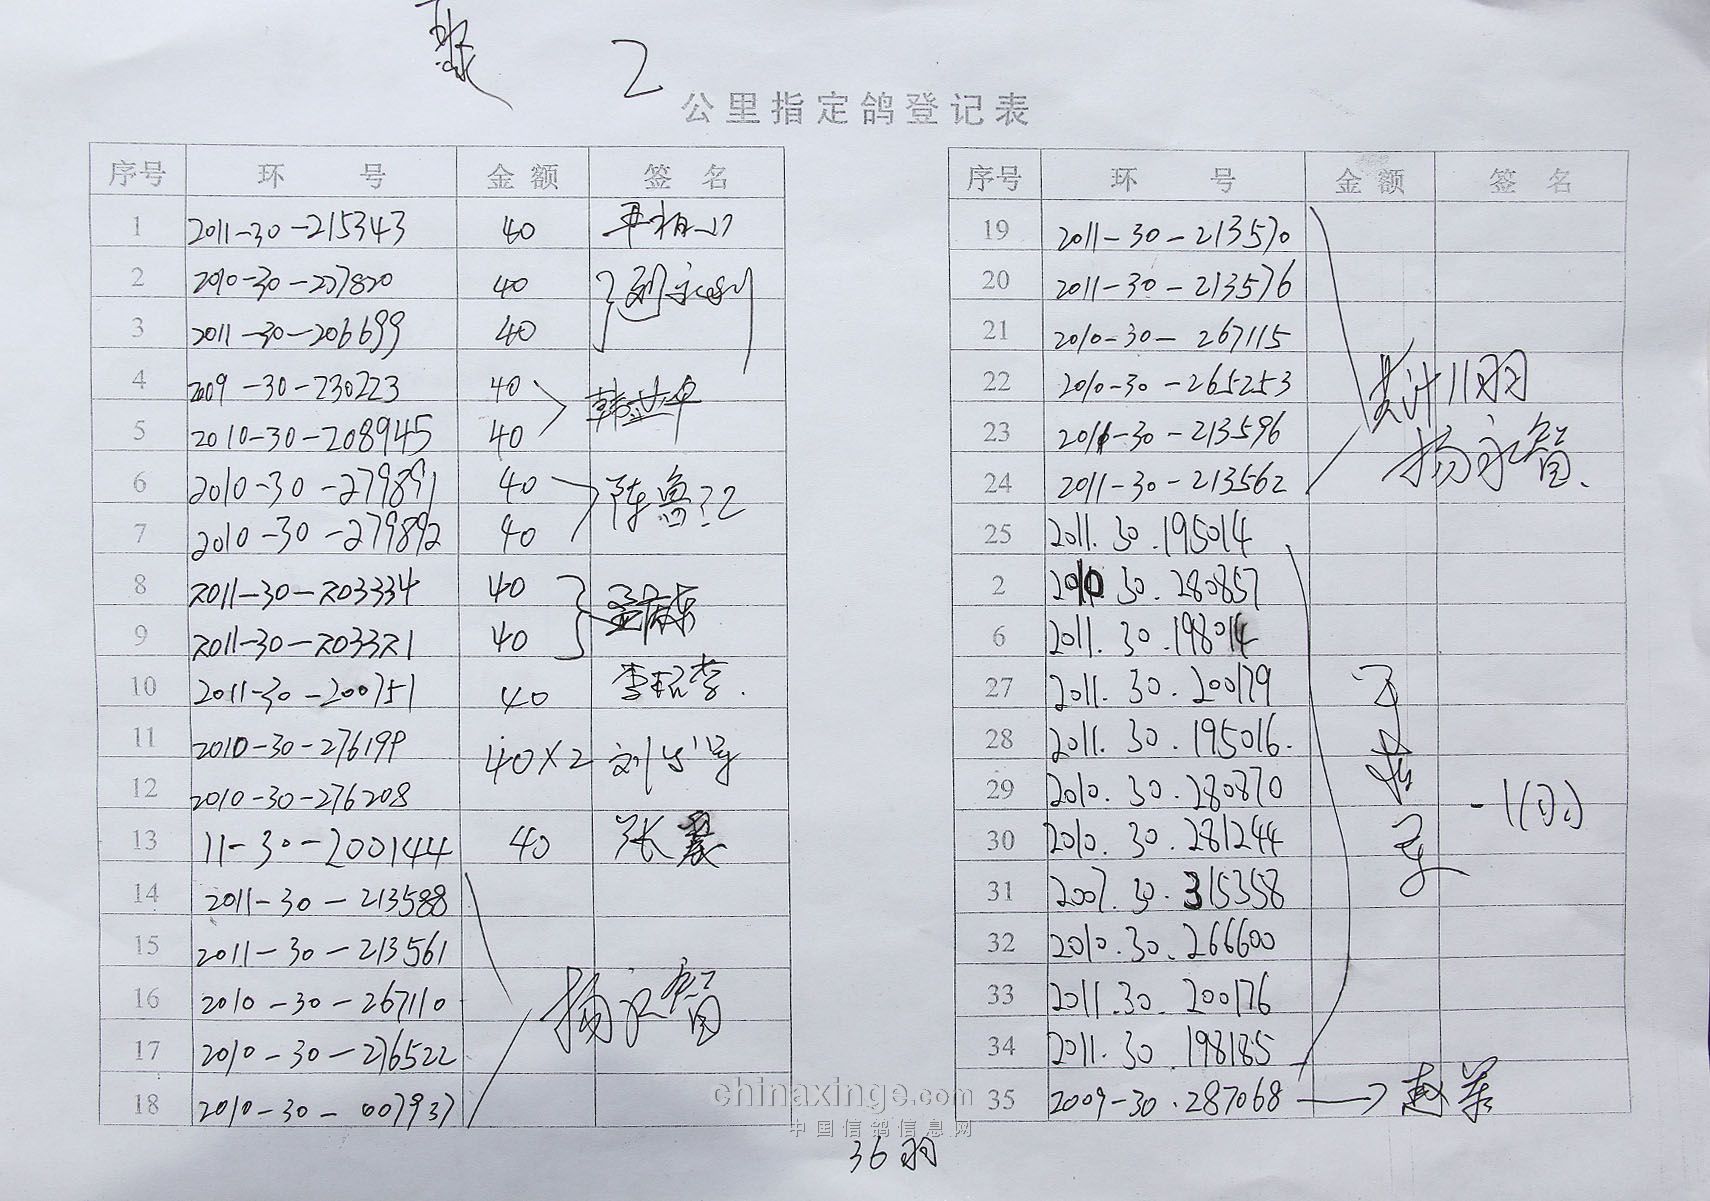 聚 2
公里指定鸽登记表
序号 环号 金额 签名
1 2011-30-215343 40
2 2010-30-227820 40
3 2011-30-206699 40
4 2009-30-230223 40
5 2010-30-208945 40
6 2010-30-279891 40
7 2010-30-279892 40
8 2011-30-203334 40
9 2011-30-203321 40
10 2011-30-200751 40
11 2010-30-276199 40×2
12 2010-30-276208
13 11-30-200144 40 张翼
14 2011-30-213588
15 2011-30-213561
16 2010-30-267110
杨永智
17 2010-30-276522
18 2010-30-007937
序号 环号 金额 签名
19 2011-30-213570
20 2011-30-213576
21 2010-30-267115
22 2010-30-265253
共计11羽
23 2011-30-213596
杨永智
24 2011-30-213562
25 2011.30.195014
2 2010.30.280857
6 2011.30.198014
27 2011.30.200179
28 2011.30.195016.
29 2010.30.280870
30 2010.30.281244
31 2007.30.315358
32 2010.30.266600
33 2011.30.200176
34 2011.30.198185
35 2009-30.287068
36羽
chinaxinge.com
中国信鸽信息网